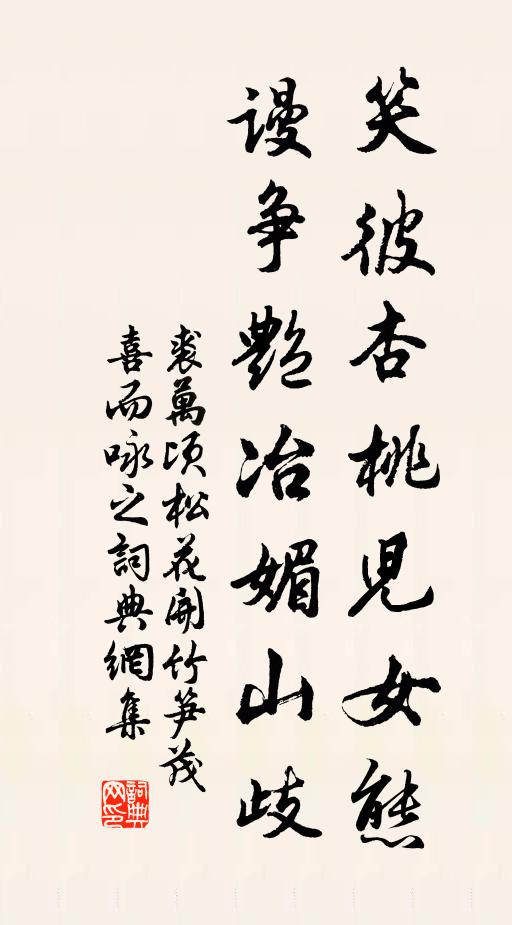 笑彼杏桃児女態
謾争艷冶媚山歧
裘萬頃松花開竹笋茂
喜而咏之詞典網集
詞典网印